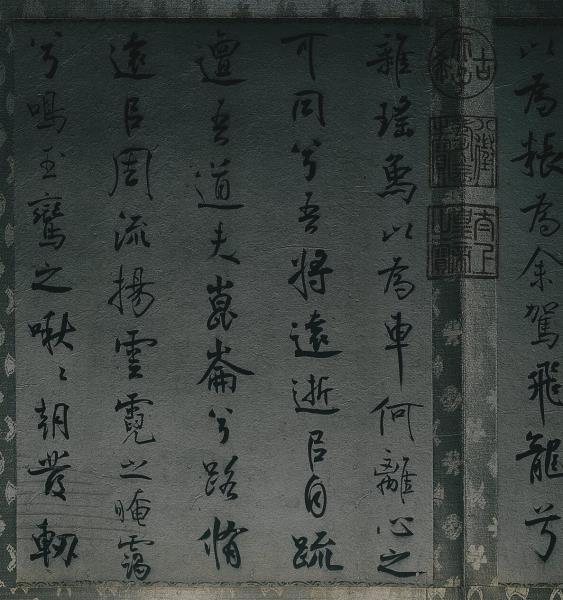 以為粻為余駕飛龍兮
雜瑤象以為車何離心之
可同兮吾將遠逝㠯自疏
邅吾道夫崑崙兮路脩
遠㠯周流揚雲霓之晻靄
兮鳴玉鸞之啾〻朝發軔